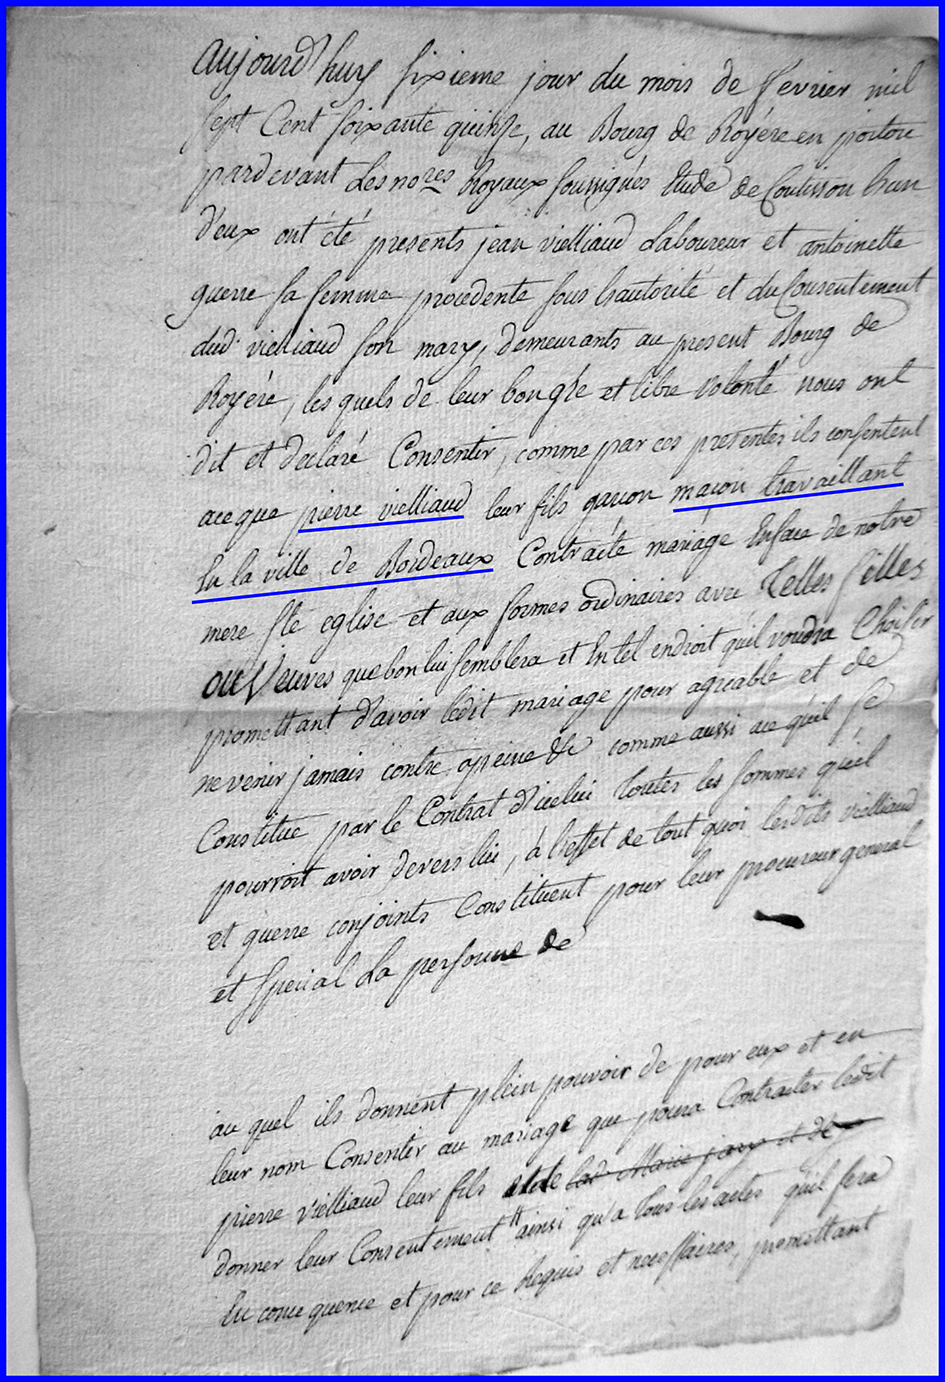 aujourd'huy sixieme jour du mois de fevrier mil
sept Cent soixante quinse, au Bourg de Royére en poitou
pardevant Les nores Royaux soussignés Etude de Coutisson L'un
d'eux ont été presents jean vielliaud Laboureur et antoinette
guerre sa femme procedente sous L'autorité et du Consentement
dud. vielliaud son mary, demeurants au present Bourg de
Royére, les quels de leur bon gré et libre volonté nous ont
dit et declaré Consentir, comme par ces presentes ils consentent
aceque pierre vielliaud leur fils garcon macon travaillant
En la ville de Bordeaux Contracte mariage Enface de notre
mere Ste eglise et aux formes ordinaires avec Telles filles
ou Veuves que bon lui semblera et En tel endroit qu'il voudra Choisir
promettant d'avoir ledit mariage pour agreable et de
ne venir jamais contre apeine &c comme aussi ace qu'il se
Constitue par le Contrat d'icelui Toutes les sommes qu'il
pourroit avoir devers lui, à l'effet de tout quoi lesdits vielliaud
et guerre conjoints Constituent pour leur procureur general
et special La personne de
au quel ils donnent plein pouvoir de pour eux et en
leur nom Consentir au mariage que poura Contracter ledit
pierre vielliaud leur fils et de lad. Marie jary et de
donner leur Consentement ainsi qu'a Tous les actes qu'il sera
En consequence et pour ce Requis et necessaires, promettant